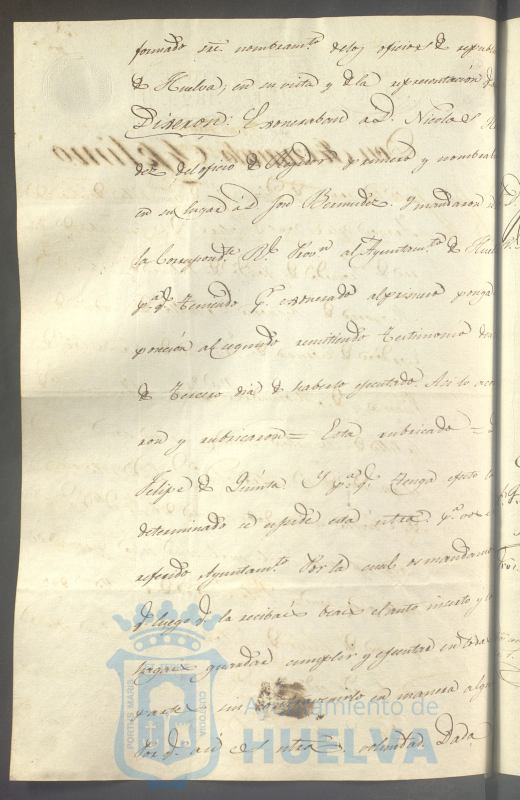 formado sre. nombramto. delos oficios de republ
de Huelva, en su vista y de la representación
Dixeron: Exoneraban a D. Nicolas
dez del oficio de Regidor primero y nombraba
en su lugar á D. José Bermudez. Y mandaron
la correspondte. Rl. Provn. al Ayuntamto. de Huel
pa. q. teniendo pr. exonerado al primero ponga
posesión al segundo remitiendo testimonio de
de tercero dia de haberlo ejecutado Asi lo aco
ron y rubricaron = Esta rubricado =
Felipe de Quinta Y pa. q. tenga efecto lo
determinado se espide esta ntra. pa. vos el
referido Ayuntamto. Por la cual os mandamos
q. luego q. la recibais veais el auto inserto y lo
hagais guardar cumplir y ejecutar en toda
parte sin contravenirlo en manera algu
Por q. asi es ntra. voluntad. Dada
PORTUS MARIS
CUSTODIA
Ayuntamiento de
HUELVA